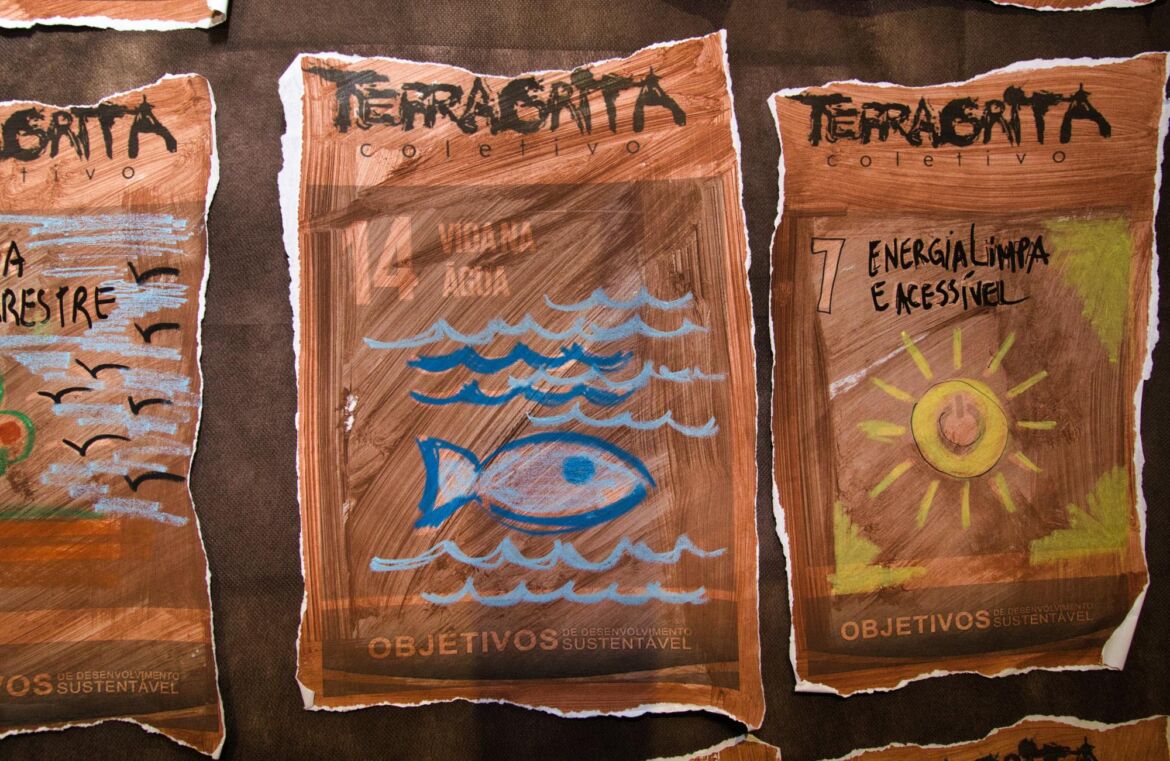 GRITA
tivo
A
RESTRE
OS DE DESENVOLVIMENTO
SUSTENTÁVEL
TERRAGRITA
coletivo
14 VIDA NA
ÁGUA
OBJETIVOS DE DESENVOLVIMENTO
SUSTENTÁVEL
TERRAGRITA
coletivo
7 ENERGIA LIMPA
E ACESSÍVEL
OBJETIVOS DE DESENVOLVIMENTO
SUSTENTÁVEL